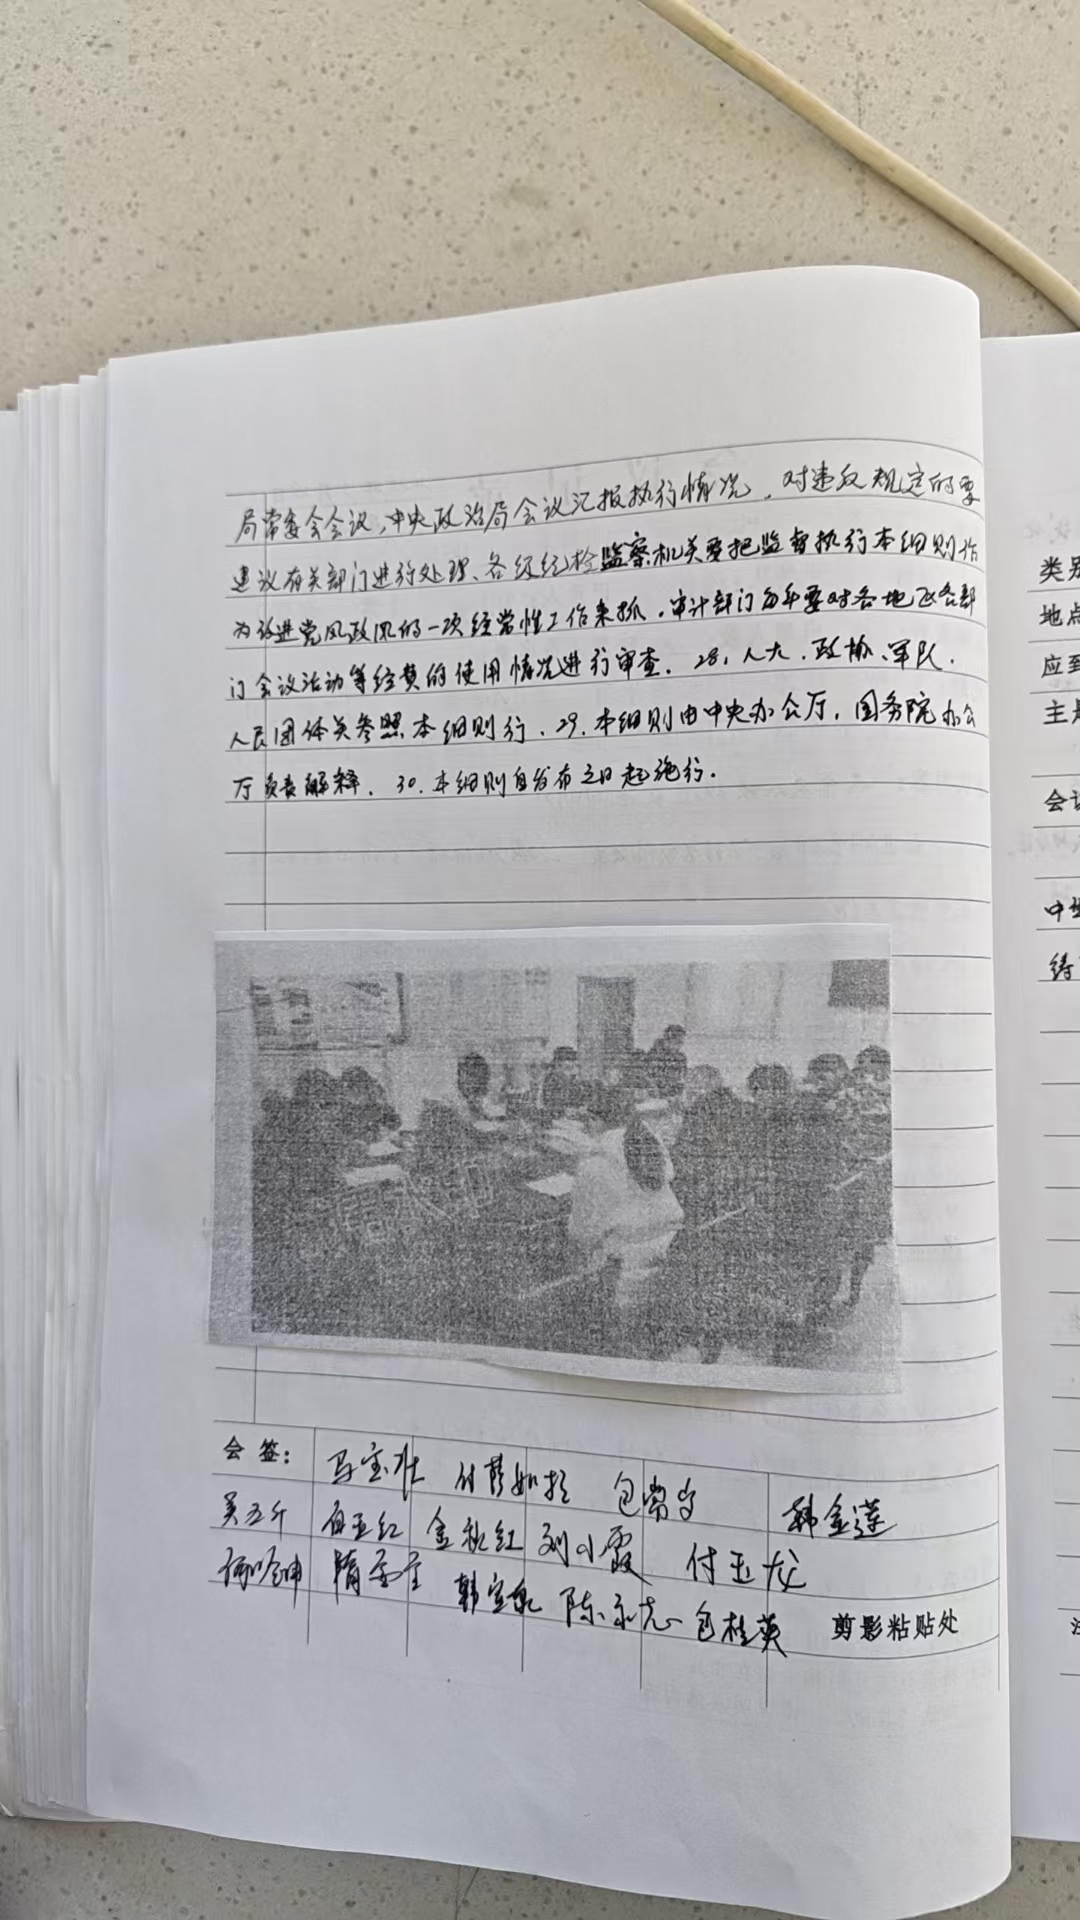 局常委会会议,中央政治局会议汇报执行情况,对违反规定的要
建议有关部门进行处理、各级纪检监察机关要把监督执行本细则作
为改进党风政风的一项经常性工作来抓,审计部门每年要对各地区各部
门会议活动等经费的使用情况进行审查.28,人大、政协、军队、
人民团体类参照本细则行.29.本细则由中央办公厅,国务院办公
厅负责解释.30.本细则自发布之日起施行.
会签: 马宝壮 包常宁 韩金莲
吴五斤 白亚红 金秋红 刘小霞 付玉龙
陈永志 包桂英 剪影粘贴处
类别
地点
应到
主
会
中